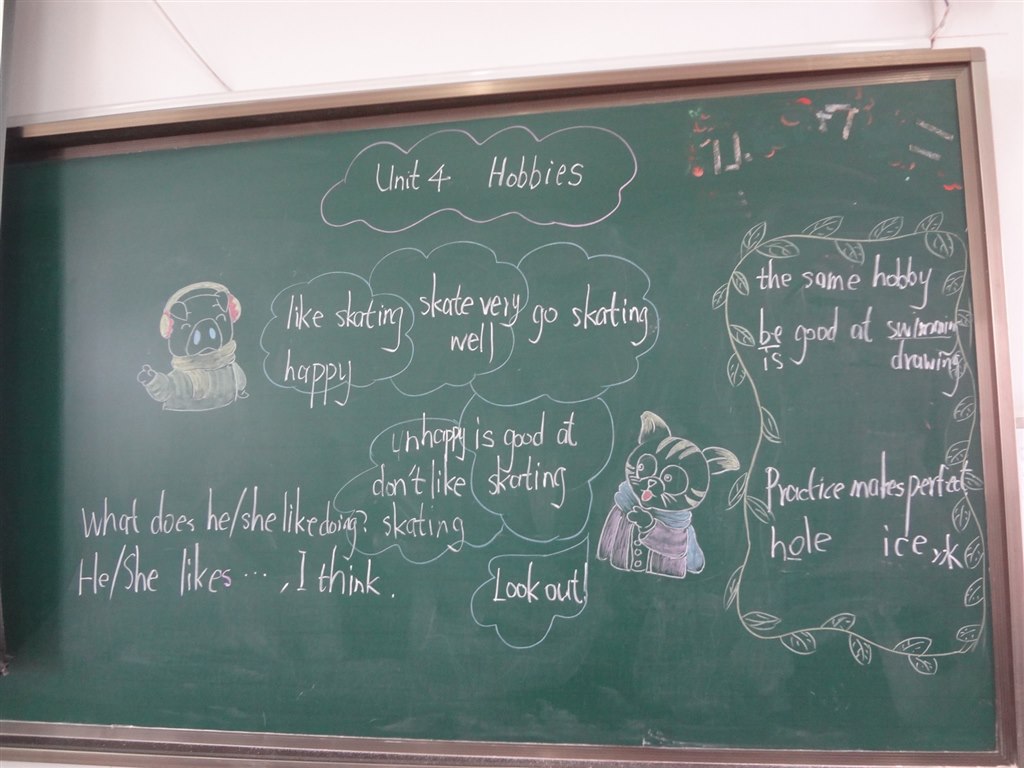 Unit 4 Hobbies
like skating
happy
skate very
well
go skating
unhappy
don't like
skating
is good at
skating
Look out!
What does he/she like doing?
He/She likes ..., I think.
the same hobby
be good at swimming
is drawing
Practice makes perfect
hole ice 冰